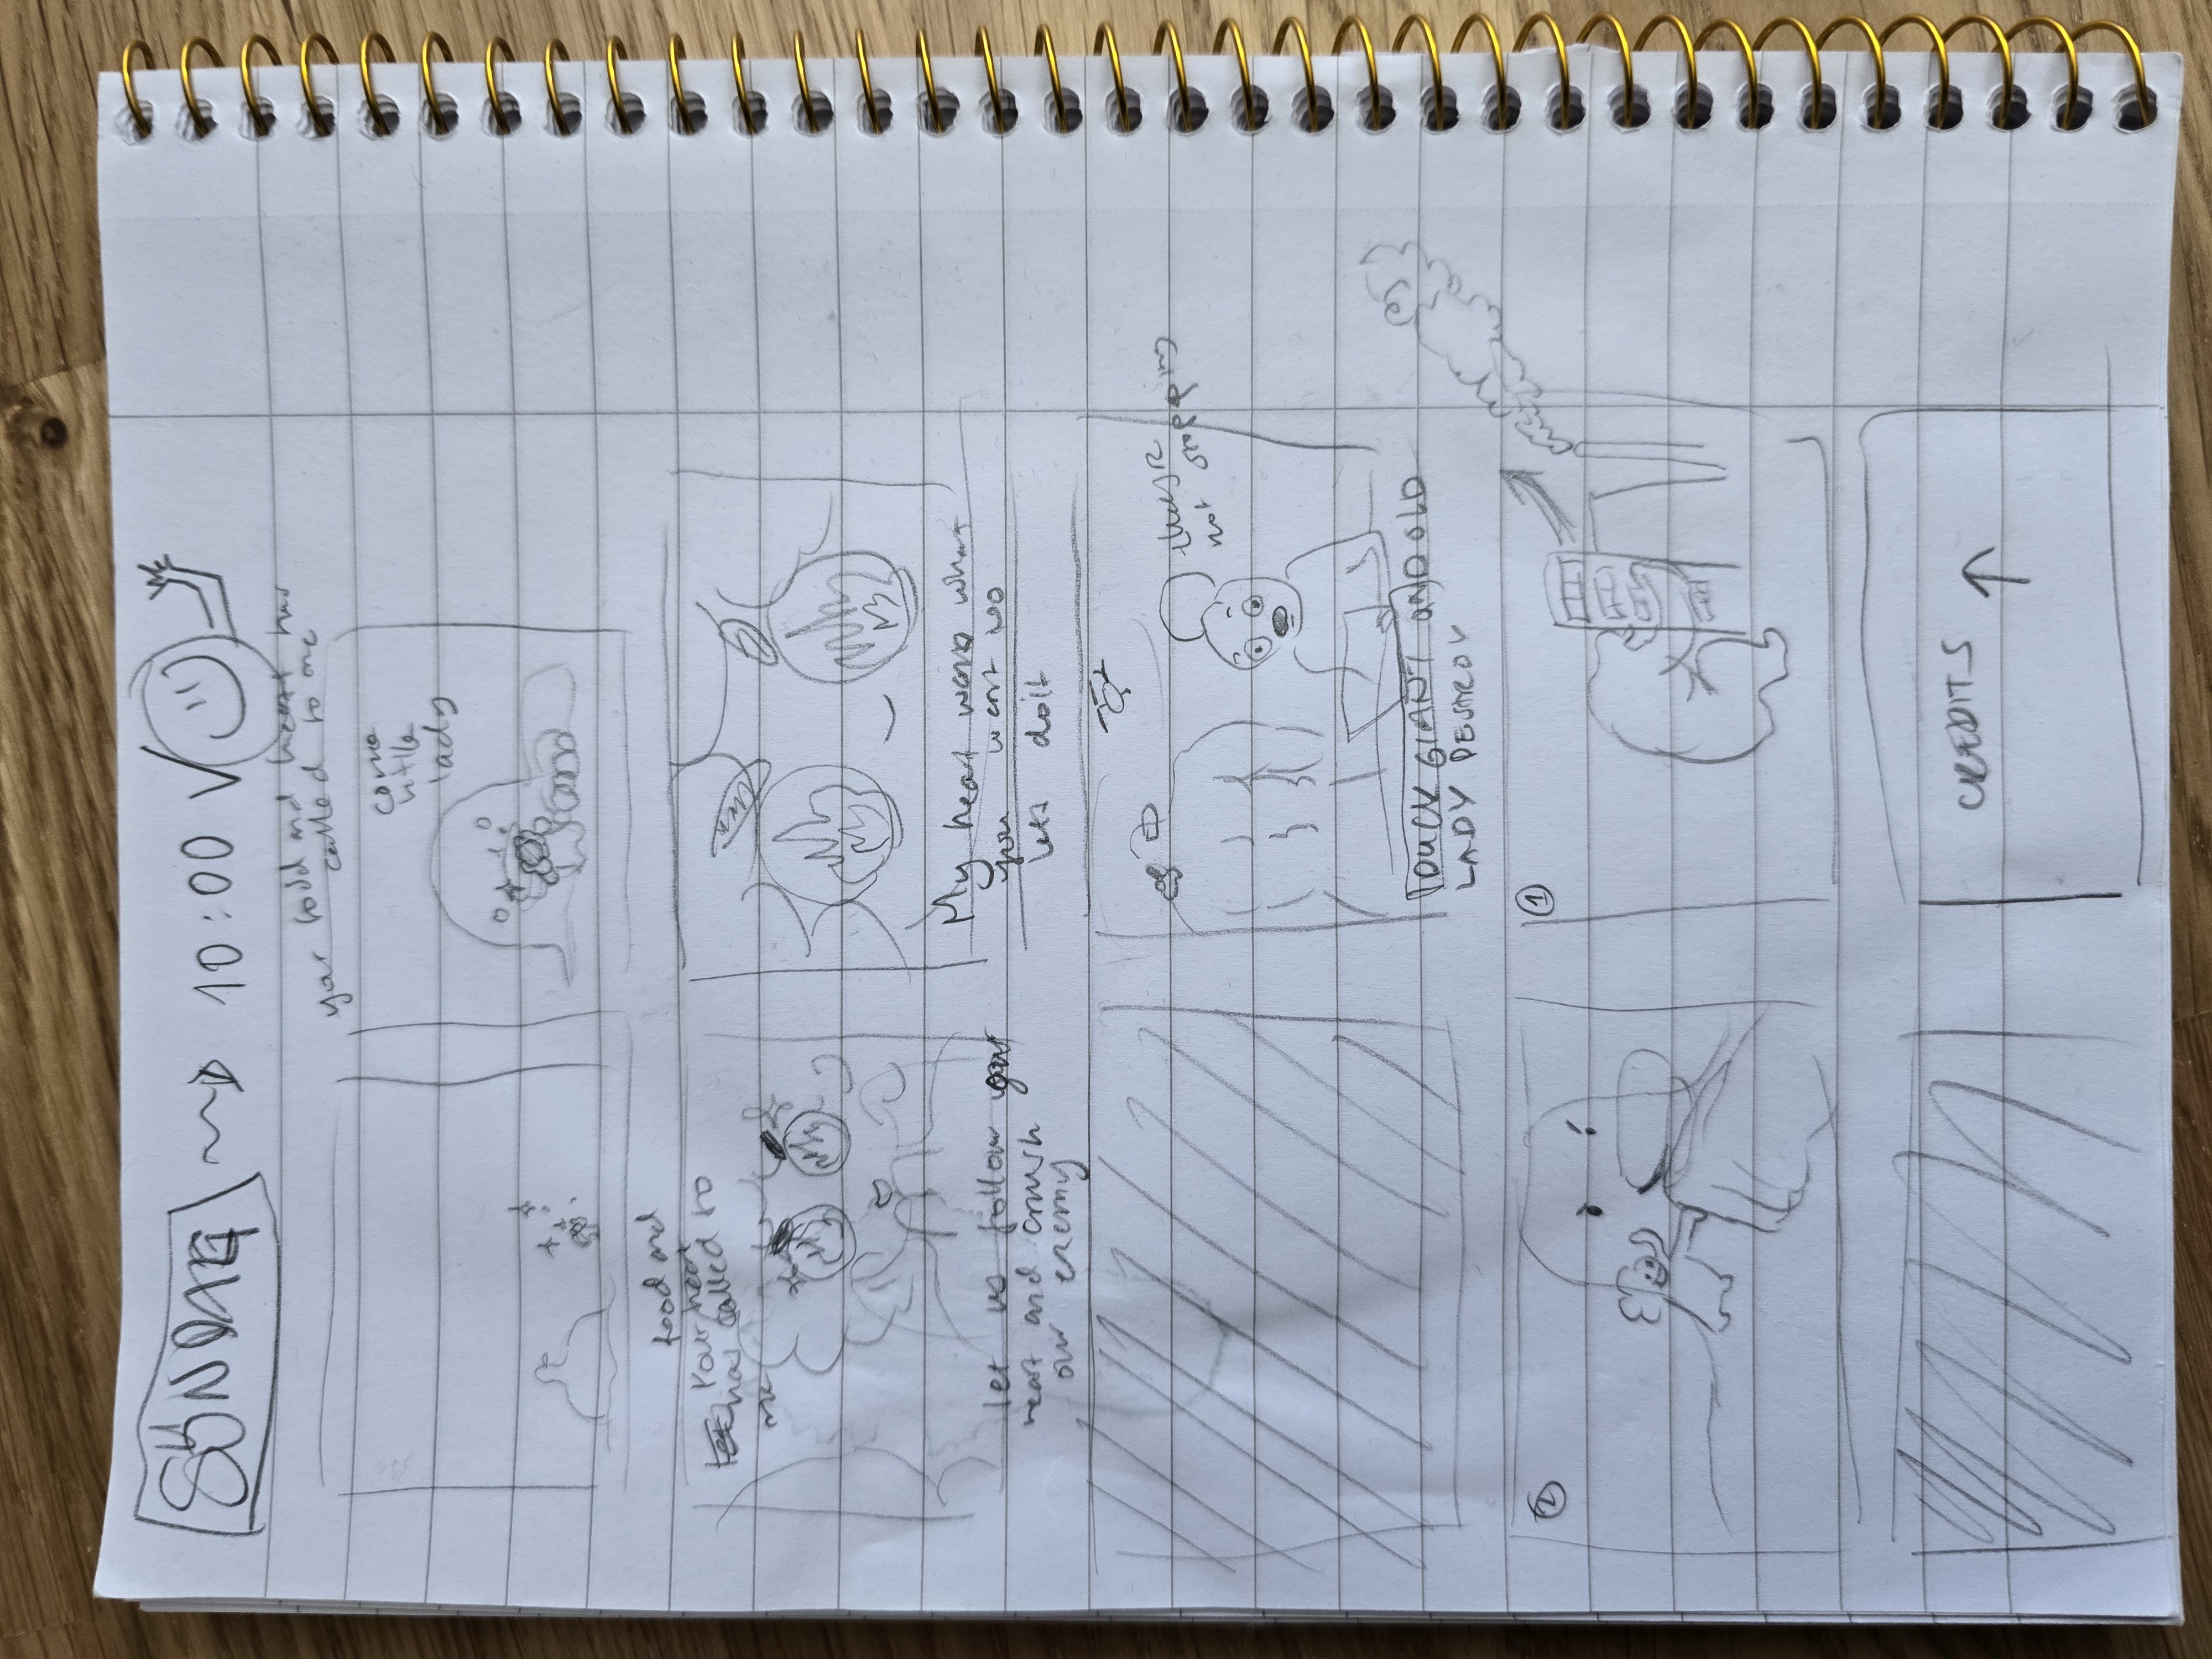 SUNDAY 10:00
your food and heart has
called to me
come
little
lady
food and
Your heart
has called to
me
let us follow your
heart and crush
our enemy
My heart wants what
you want so
lets do it
they'r
not stopping
DUCK GIANT AND OLD
LADY DESTROY
2
1
CREDITS